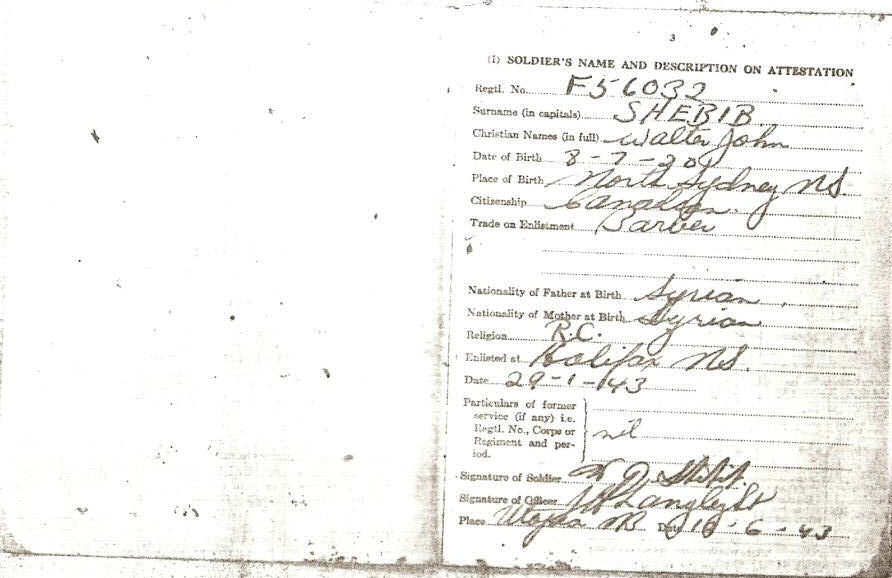 3
(1) SOLDIER'S NAME AND DESCRIPTION ON ATTESTATION
Regtl. No. F56032
Surname (in capitals) SHEBIB
Christian Names (in full) Walter John
Date of Birth 8-7-20
Place of Birth North Sydney NS.
Citizenship Canadian.
Trade on Enlistment Barber
Nationality of Father at Birth Syrian
Nationality of Mother at Birth Syrian
Religion R.C.
Enlisted at Halifax NS.
Date 29-1-43
Particulars of former
service (if any) i.e.
Regtl. No., Corps or nil
Regiment and per-
iod.
Signature of Soldier Shebib
Signature of Officer
Place Date 16-6-43